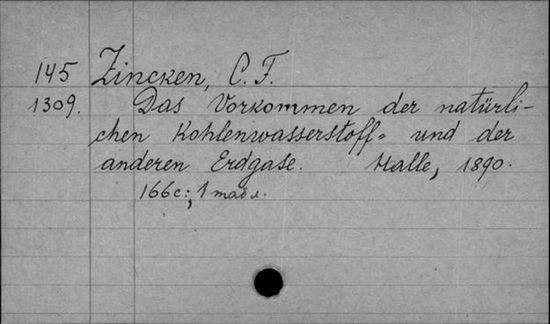 145 Zincken, C. F.
1309. Das Vorkommen der natürli-
chen Kohlenwasserstoff= und der
anderen Erdgase. Halle, 1890.
166 с.; 1 табл.